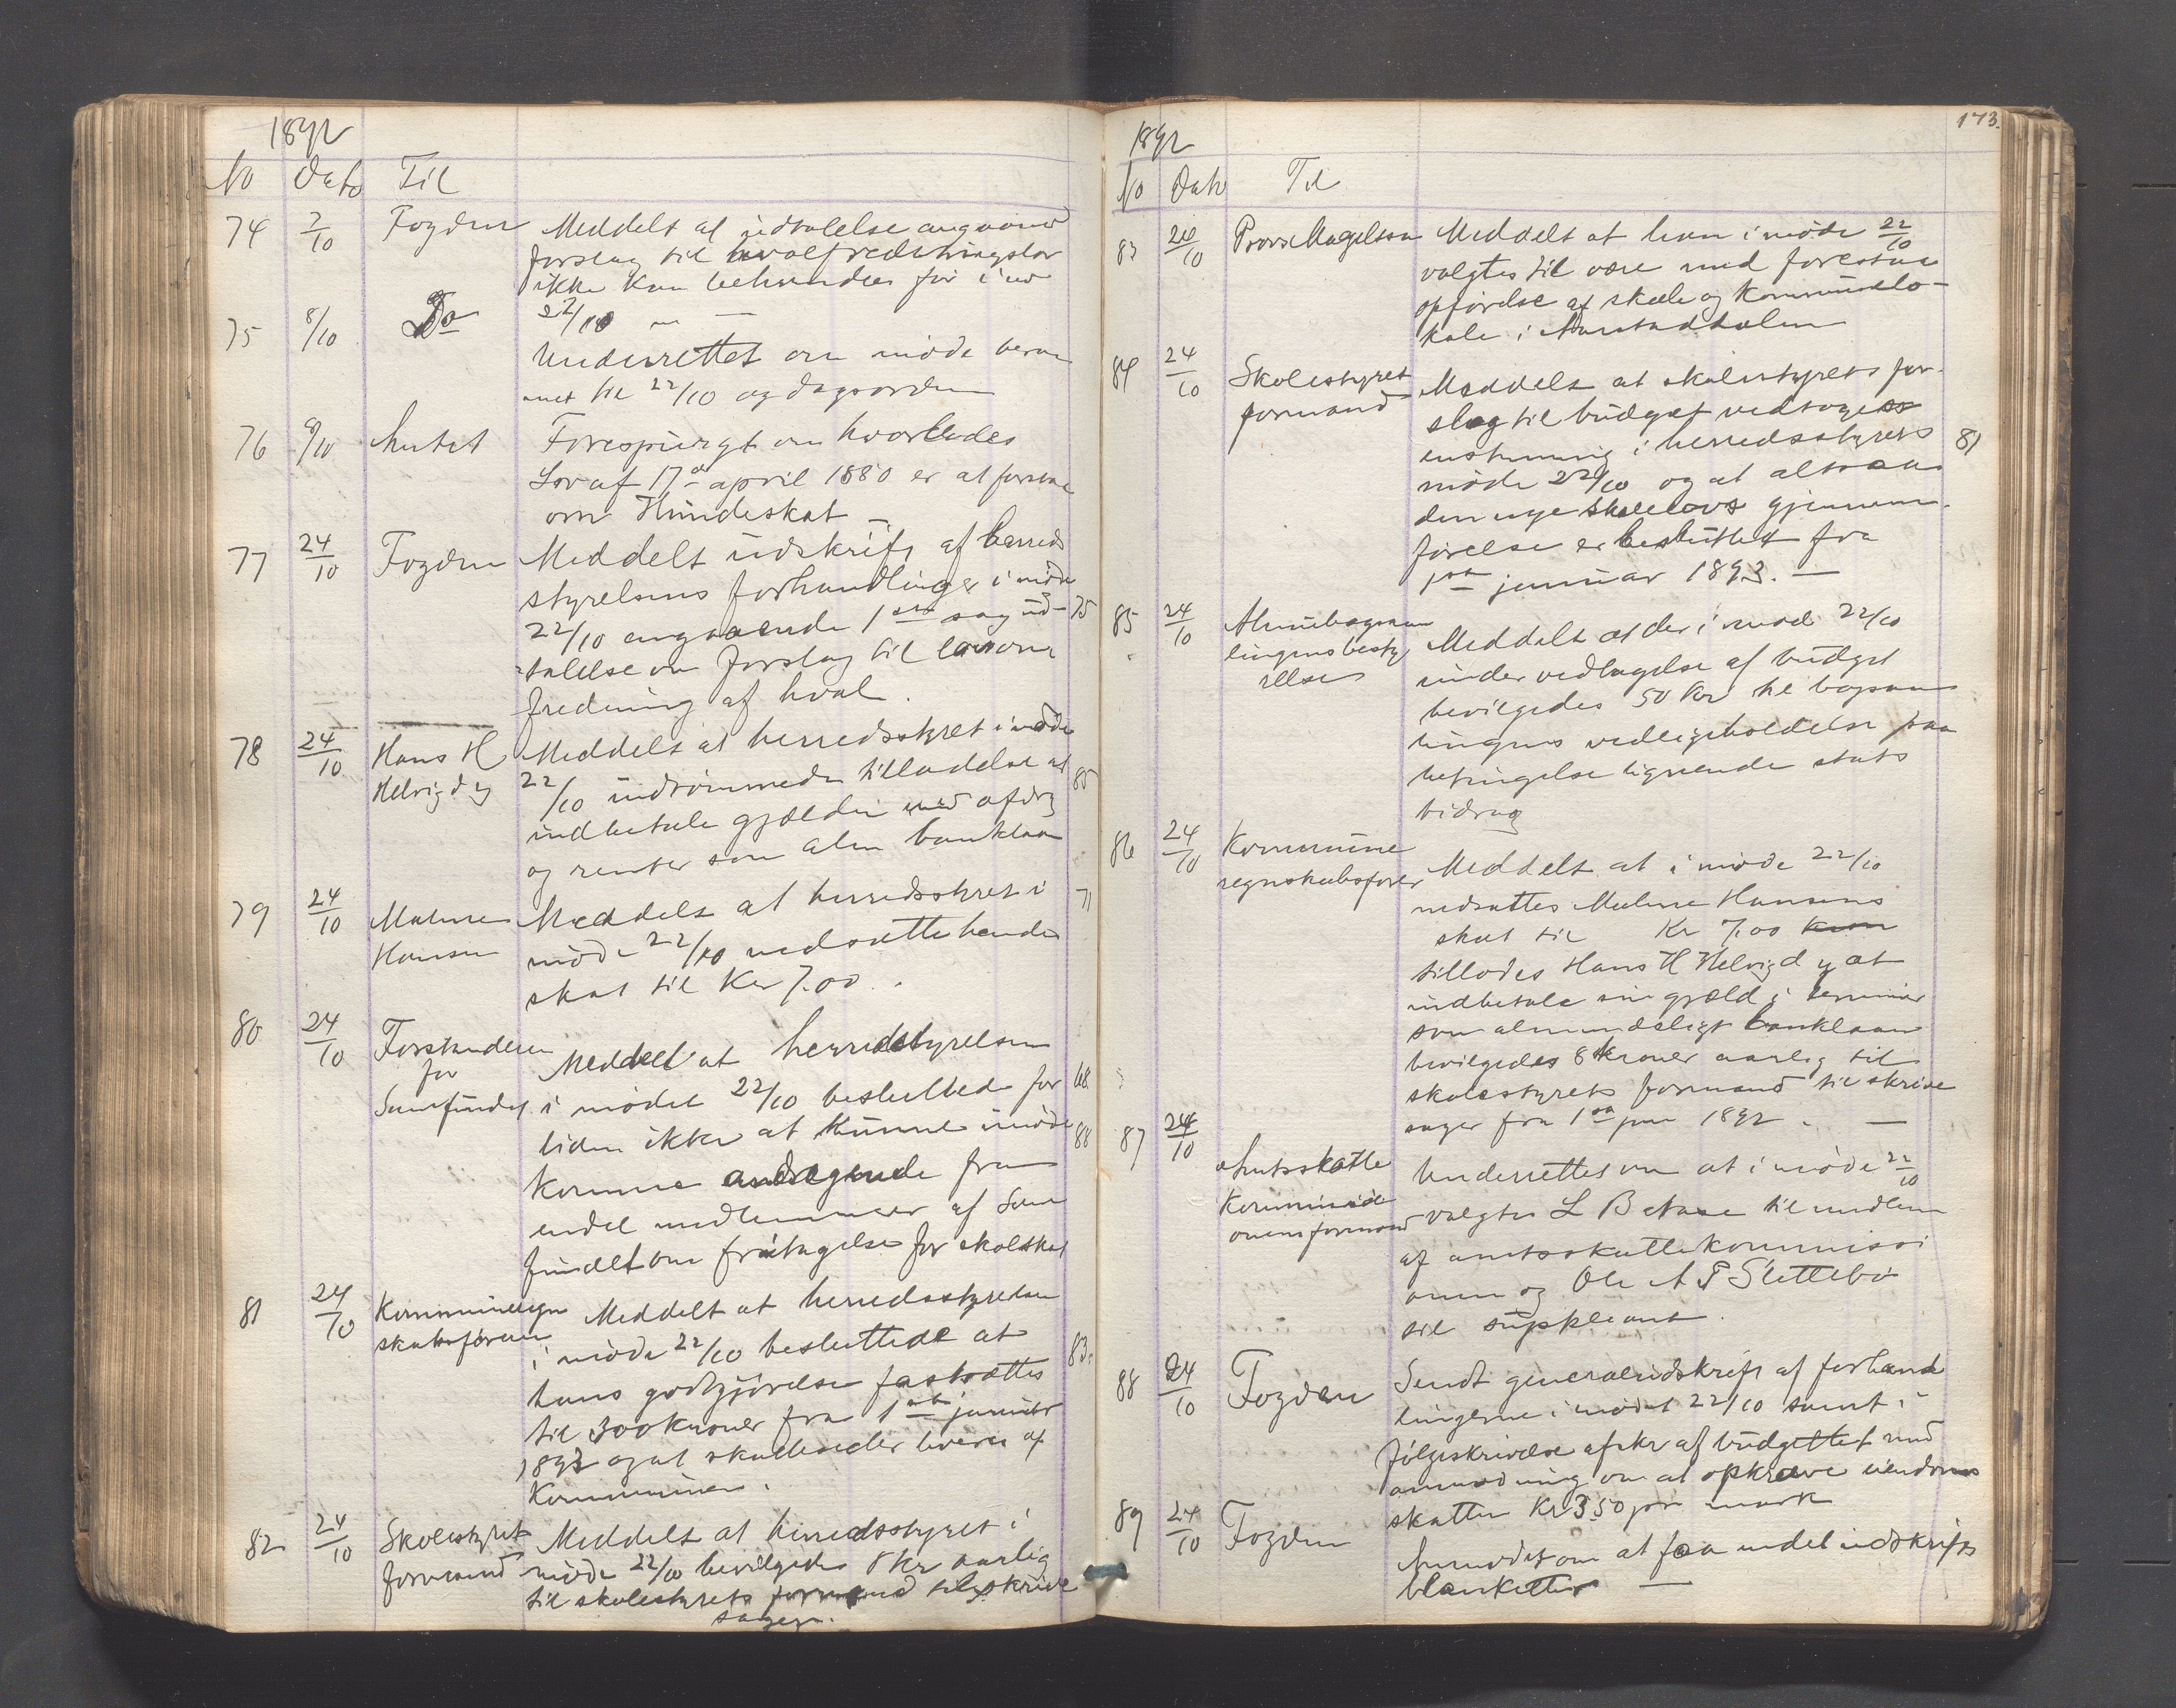 1892
No Dato Til
74 7/10 Fogden Meddelt at udtalelse angaaend
forslag til hvalfredningslov
ikke kan behandles før i mø
22/10 — —
75 8/10 Do
Underrettet om møde beram
met til 22/10 og dagsorden
76 9/10 Amtet Forespurgt om hvorledes
Lov af 17de april 1880 er at forstaa
om Hundeskat —
77 24/10 Fogden Meddelt udskrift af herreds
styrelsens forhandlinger i møde
22/10 angaaende 1ste sag ud- 75
talelse om forslag til lov om
fredning af hval.
78 24/10 Hans H Meddelt at herredsstyret i møde
Helvigdy 22/10 indrømmede tilladelse at 85
indbetale gjælden med afdrg
og renter som alm banklaan
79 24/10 Malene Meddelt at herredsstyret i 71
Hansen møde 22/10 nedsatte hendes
skat til Kr 7.00.
80 24/10 Forstanderen
for Meddelt at herredstyrelsen
Samfundet i mødet 22/10 besluttede for 68
tiden ikke at kunne imøde 88
komme andragende fra
endel medlemmer af Sam
fundet om fritagelse for skoleskat
81 24/10 Kommuneregn Meddelt at herredsstyrelsen
skabsføreren i møde 22/10 besluttede at 83.
hans godtgjørelse fastsættes
til 300 kroner fra 1ste januar
1893 og at skattesedler leveres af
Kommunen.
82 24/10 Skolestyrets Meddelt at herredsstyret i
formand møde 22/10 bevilgedes 8 kr aarlig
til skolestyrets formand til skrive
sager.
173.
1892
No Dato Til
83 24/10 Provst Magelssen Meddelt at han i møde 22/10
valgtes til være med forestaa
opførelse af skole og kommunelo-
kale i Aarstaddalen
84 24/10 Skolestyrets Meddelt at skolestyrets for-
formand slag til budget vedtoges
enstemmig i herredsstyrets 81
møde 22/10 og at altsaa
den nye skolelovs gjennem-
førelse er besluttet fra
1ste januar 1893. —
85 24/10 Almuebogsam
lingens besty Meddelt at der i møde 22/10
relse under vedtagelse af budget
bevilgedes 50 Kr til bogsam
lingens vedligeholdelse paa
betingelse lignende stats
bidrag
86 24/10 Kommune
regnskabsfører Meddelt at i møde 22/10
nedsattes Malene Hansens
skat til Kr 7.00
tillodes Hans H Helvigdy at
indbetale sin gjæld i terminer
som almindeligt banklaan
bevilgedes 8 kroner aarlig til
skolestyrets formand til skrive
sager fra 1ste jan 1892. —
87 24/10 Amtsskatte Underrettes om at i møde 22/10
kommissi
onens formand valgtes L B Aase til medlem
af amtsskattekommissi
onen og Ole A P Slettebø
til suppleant.
88 24/10 Fogden Sendt generaludskrift af forhand
lingerne i mødet 22/10 samt i
følgeskrivelse afskr af budgettet med
anmodning om at opkræve eiendoms
skatten Kr 3.50 pr mark
89 24/10 Fogden
Anmodet om at faa endel udskrifts
blanketter —